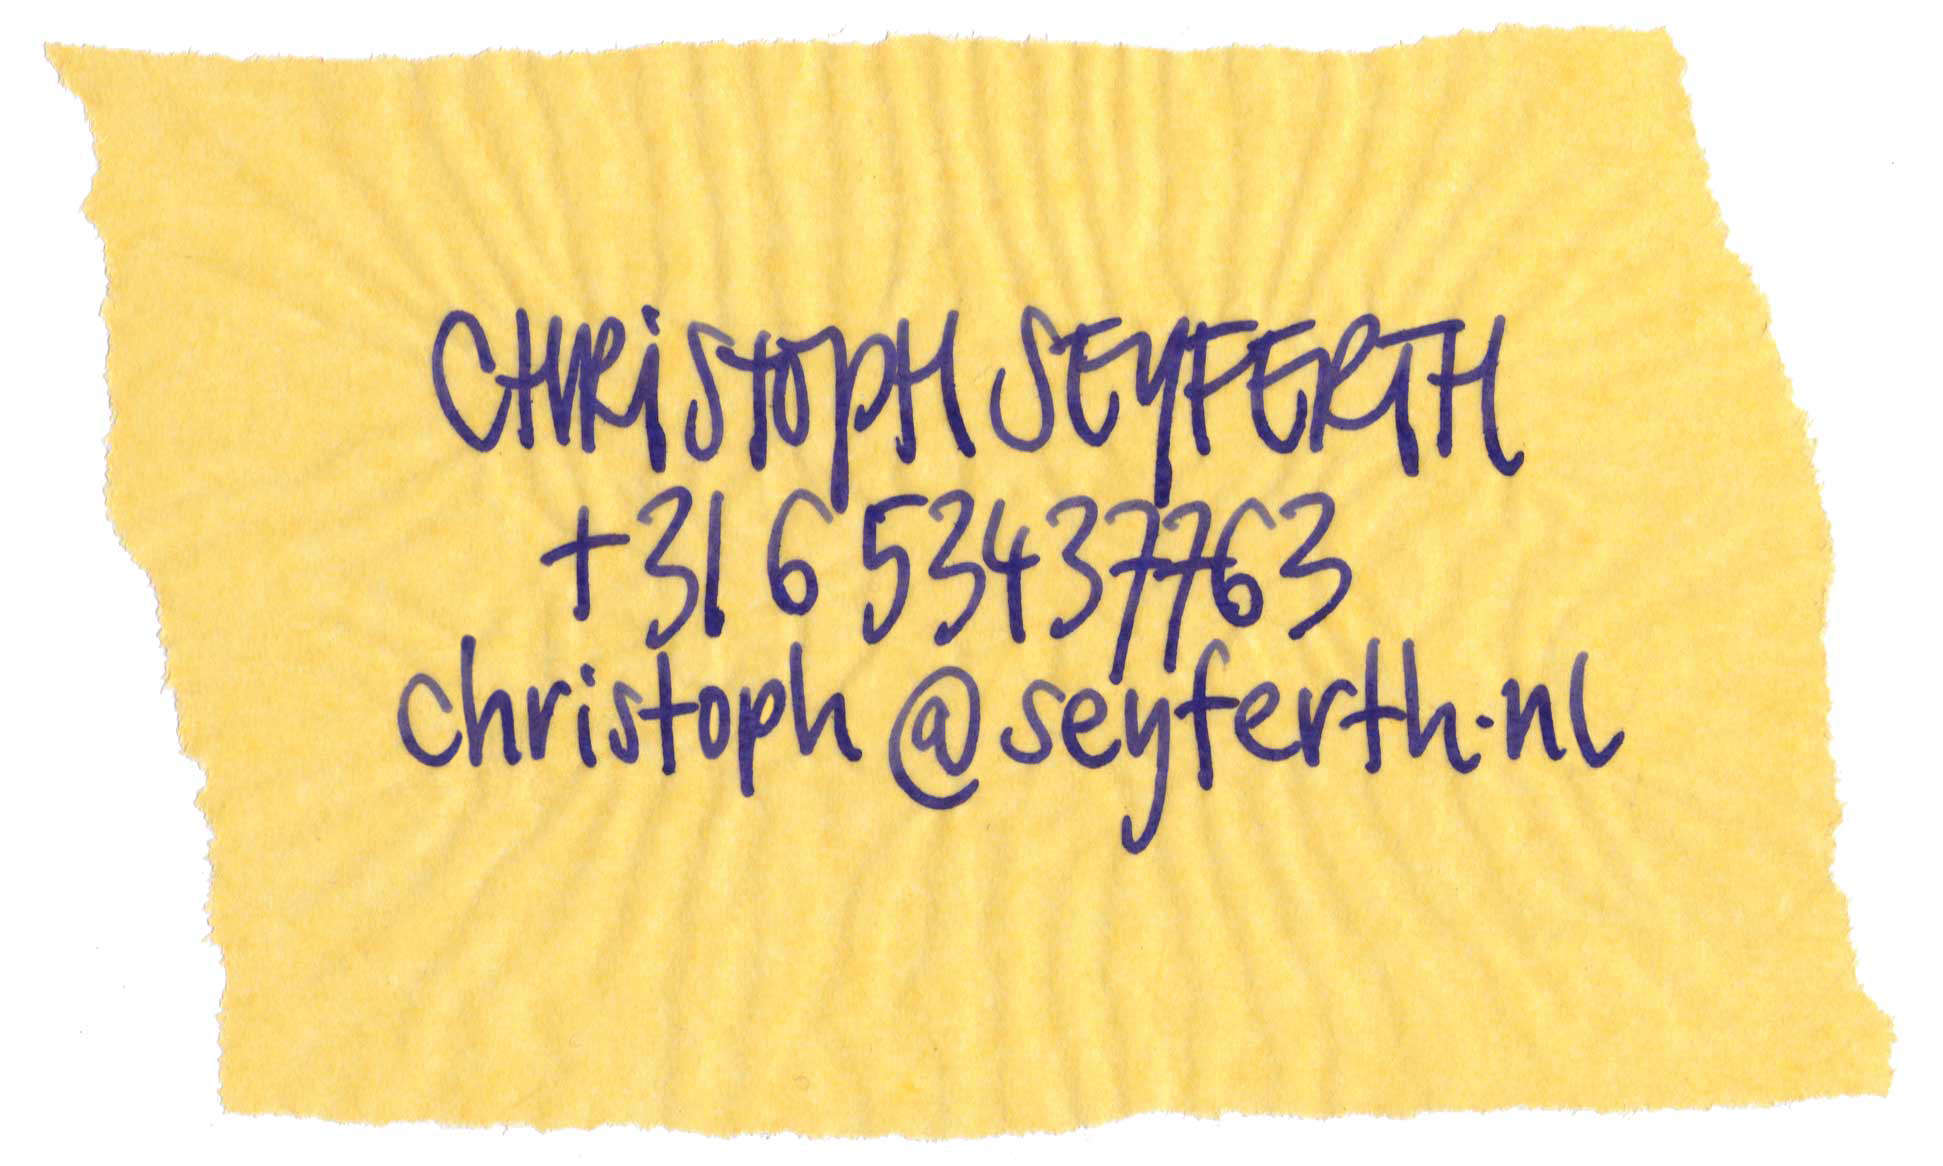 CHRiSTOPH SEYFERTH
+31 6 53437763
christoph@seyferth.nl